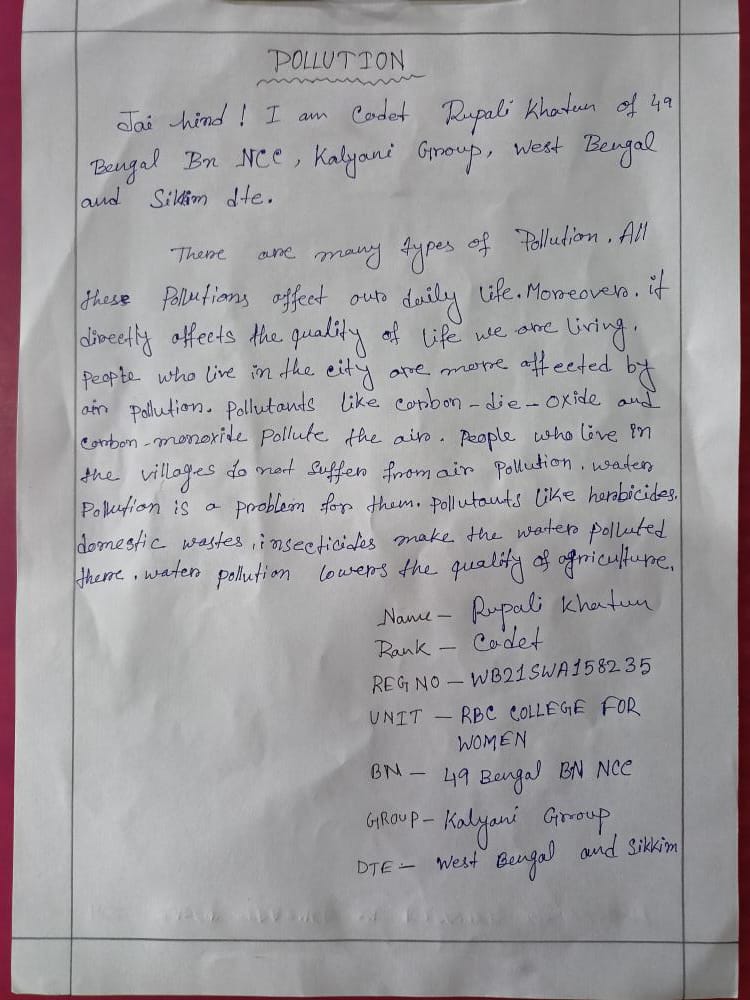 POLLUTION
Jai hind! I am Cadet Rupali Khatun of 49
Bengal Bn NCC, Kalyani Group, West Bengal
and Sikkim dte.
There are many types of Pollution. All
these Pollutions affect our daily life. Moreover. it
directly affects the quality of life we are living.
People who live in the city are more affected by
air pollution. Pollutants like carbon-die-oxide and
carbon-monoxide Pollute the air. People who live in
the villages do not suffer from air Pollution. water
Pollution is a problem for them. Pollutants like herbicides.
domestic wastes, insecticides make the water polluted
there. water pollution lowers the quality of agriculture.
Name - Rupali Khatun
Rank - Cadet
REG NO - WB21SWA158235
UNIT - RBC COLLEGE FOR
WOMEN
BN - 49 Bengal BN NCC
GROUP - Kalyani Group
DTE - West Bengal and Sikkim